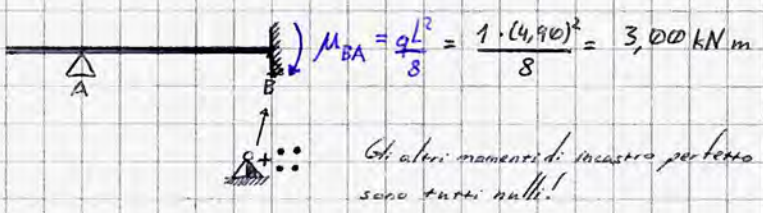 μ_BA = qL²/8 = 1·(4,90)²/8 = 3,00 kN m
A
B
Gli altri momenti di incastro perfetto
sono tutti nulli!